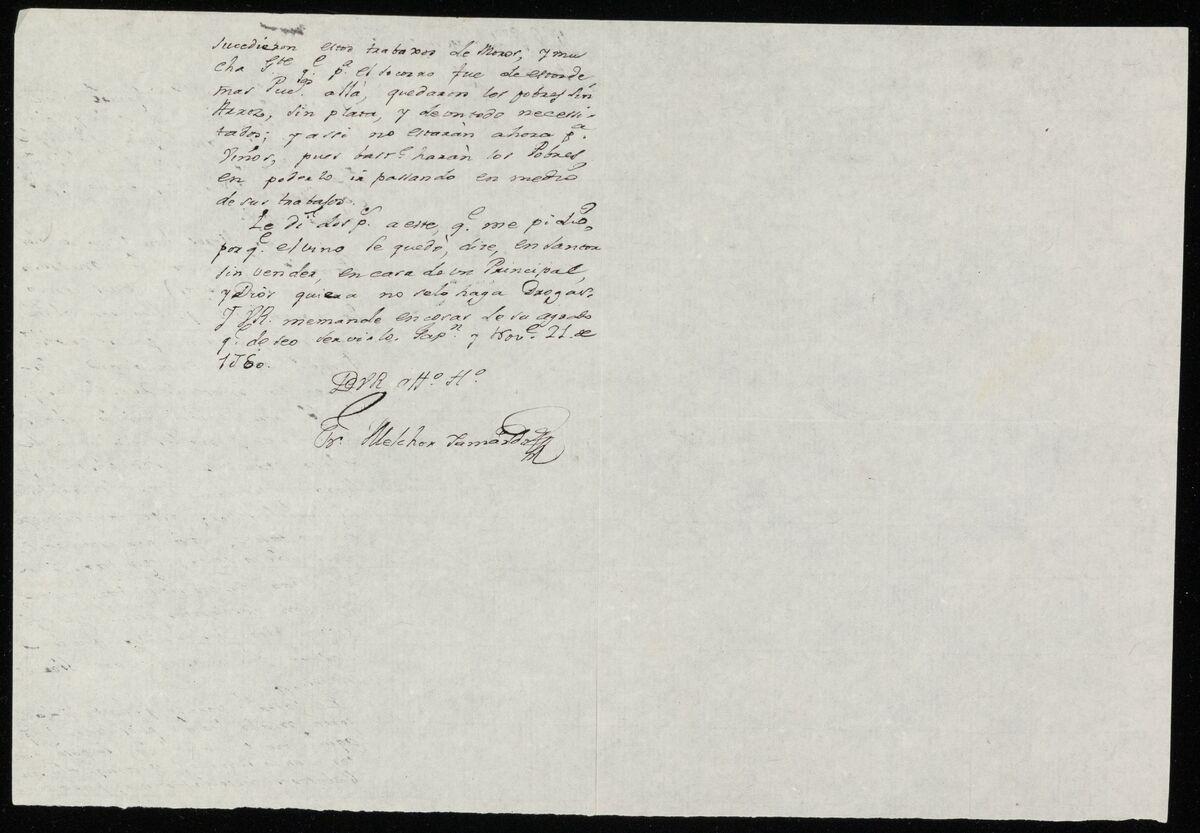 sucedieron estos trabaxos de Moros, y mu
cha Gte. q.e p.a el socorro fue de estos de
mas Pueb.s allà, quedaron los pobres sin
Arroz, sin plata, y de un todo necessi-
tados; y assi no estaràn ahora p.a
Vinos, pues bast.e haràn los Pobres,
en poderlo ir passando en medio
de sus trabajos.
Le di dos p.s a este, q.e me pidio,
por q.e el vino se quedò, dize, en Santa
sin vender, en casa de un Principal,
y Dios quiera no selo haga Drogas.
Y VR. me mande en cosas de su agrado
q.e deseo servirle. y Nov.e 21 de
1760.
DVR aff.o H.o
Fr. Melchor